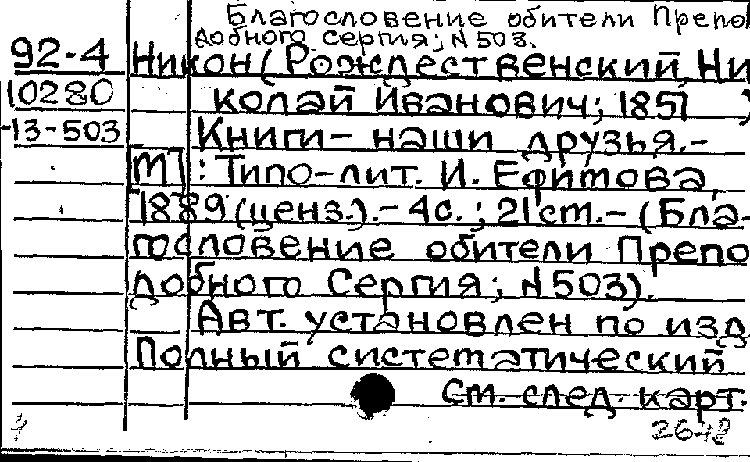 Благословение обители Препо
добного Сергия; N 503.
92-4 Никон (Рождественский, Ни
10280 колай Иванович; 1851 )
-13-503 Книги - наши друзья.-
[М] : Типо-лит. И. Ефимова,
1889 (ценз.).- 4с. ; 21 см.- (Бла-
гословение обители Препо
добного Сергия; N 503).
Авт. установлен по изд.
Полный систематический
см. след. карт.
26-48